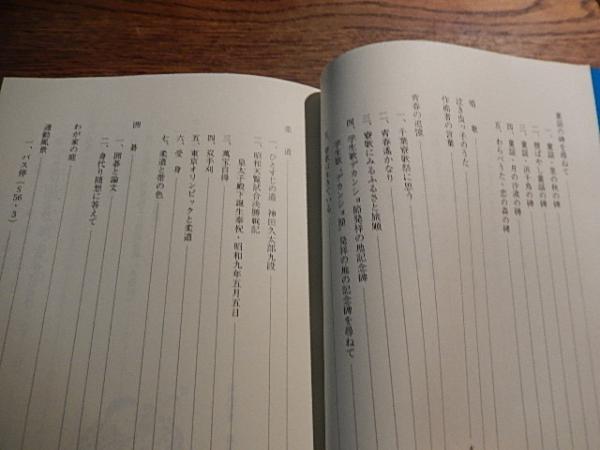 童謡の碑を尋ねて
一、童謡・里の秋の碑
二、証ばやし童謡の碑
三、童謡・浜千鳥の碑
四、童謡・月の沙漠の碑
五、わらべうた・恋の森の碑
唱歌
泣き虫っ子のうた
作曲者の言葉
青春の追憶
一、千葉寮歌祭に思う
二、青春遙かなり
三、寮歌にみるふるさと旅順
四、学生歌デカンショ節発祥の地記念碑
学生歌「デカンショ節」発祥の地の記念碑を尋ねて
五、
柔道
一、ひとすじの道 神田久太郎九段
二、昭和天覧試合決勝戦記
皇太子殿下誕生奉祝・昭和九年五月五日
三、萬宝自得
四、双手刈
五、東京オリンピックと柔道
六、愛身
七、柔道と帯の色
囲碁
一、囲碁と論文
二、身代り随想に答えて
わが家の庭
通勤風景
一、バス停(S56・3)